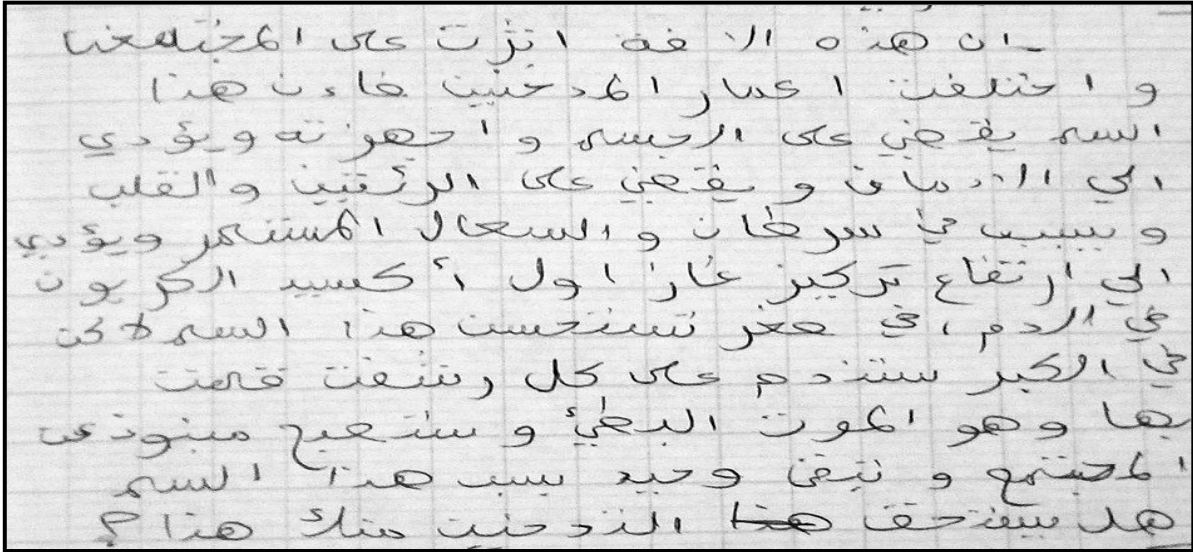 - ان هذه الافة اثرت على المجتمعنا
و اختلفت اعمار المدخنين فاءن هذا
السم يقضي على الجسم و اجهزته ويؤدي
الي الادمان و يقضي على الرئتين والقلب
و يسبب في سرطان و السعال المستمر ويؤدي
الي ارتفاع تركيز غاز اول أكسيد الكربون
في الدم، في صغر تستحسن هذا السم لاكن
في الكبر ستندم على كل رشفت قمت
بها وهو الموت البطئ و ستصبح منبوذ عن
المجتمع و تبقى وحيد بسبب هذا السم
هل يستحق هذا التدخين منك هذا؟